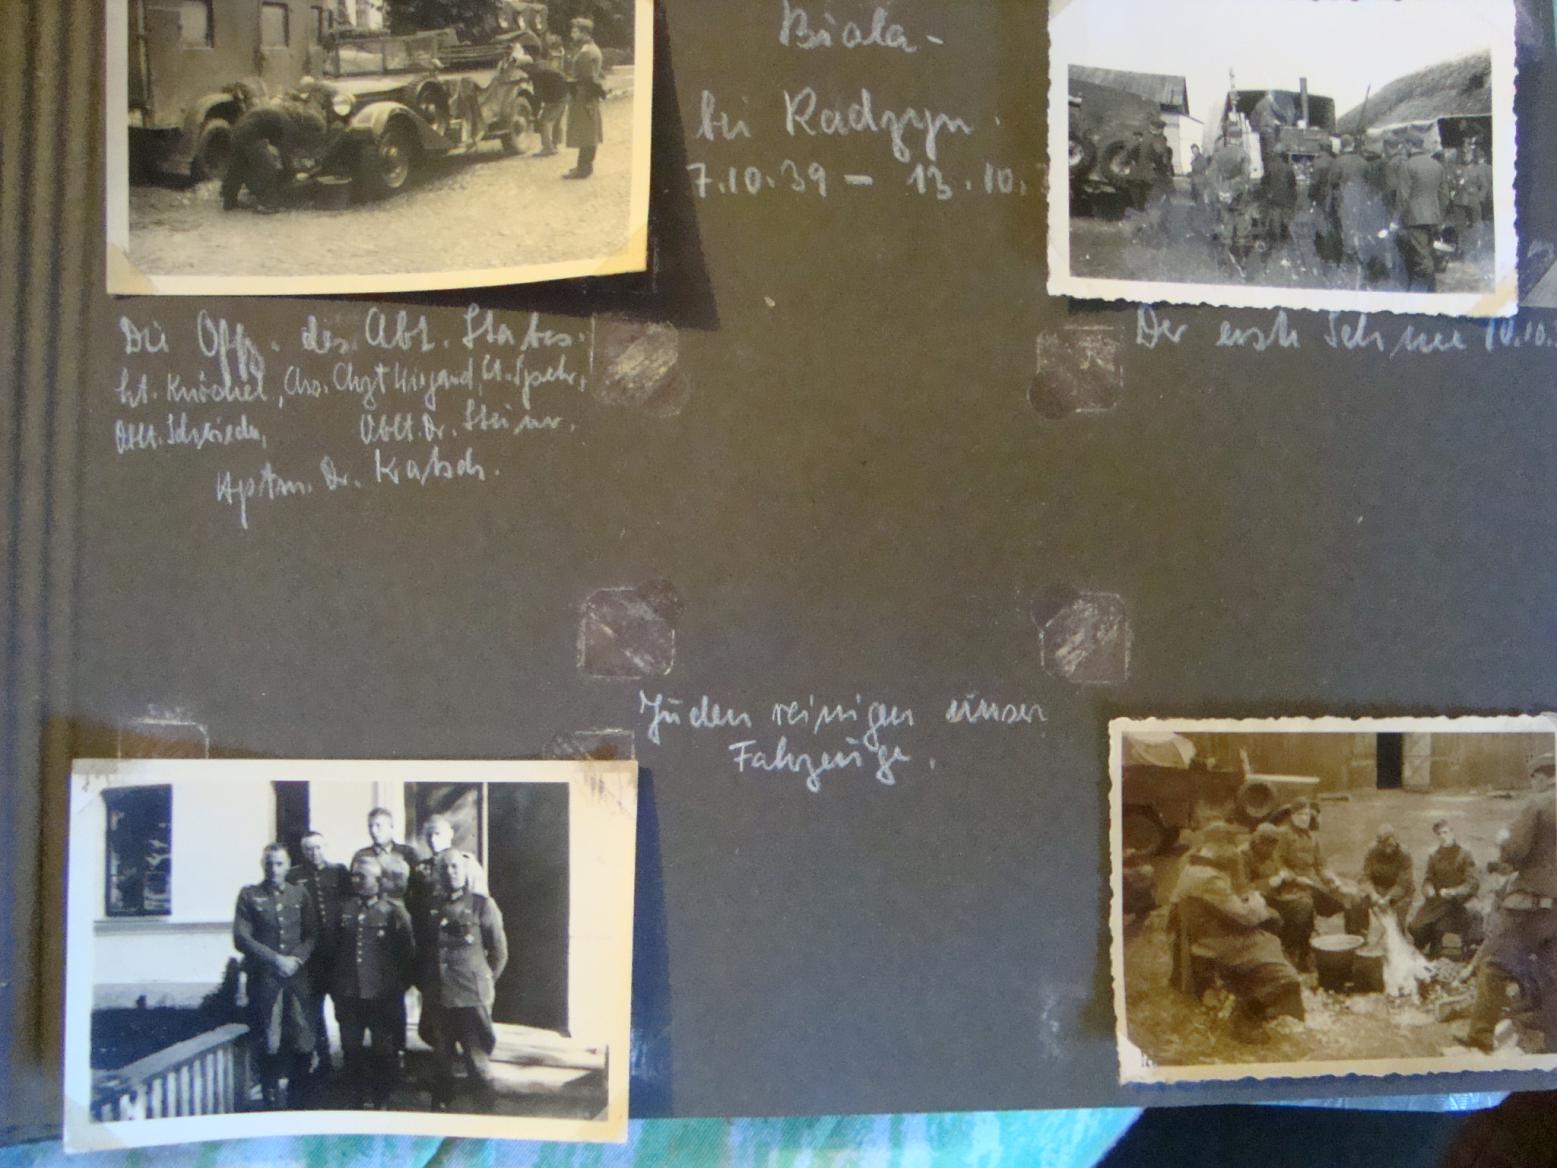 Biala-
bei Radzyn.
7.10.39 - 13.10.3
Die Offz. des Abt. Stabes.
Lt. Knöchel, Ass. Arzt Wiegand, Lt. Spehr,
Oblt. Oblt. Dr. Steiner.
Hptm. Dr. Kratsch.
Der erste Schnee 10.10.
Juden reinigen unser
Fahrzeuge.